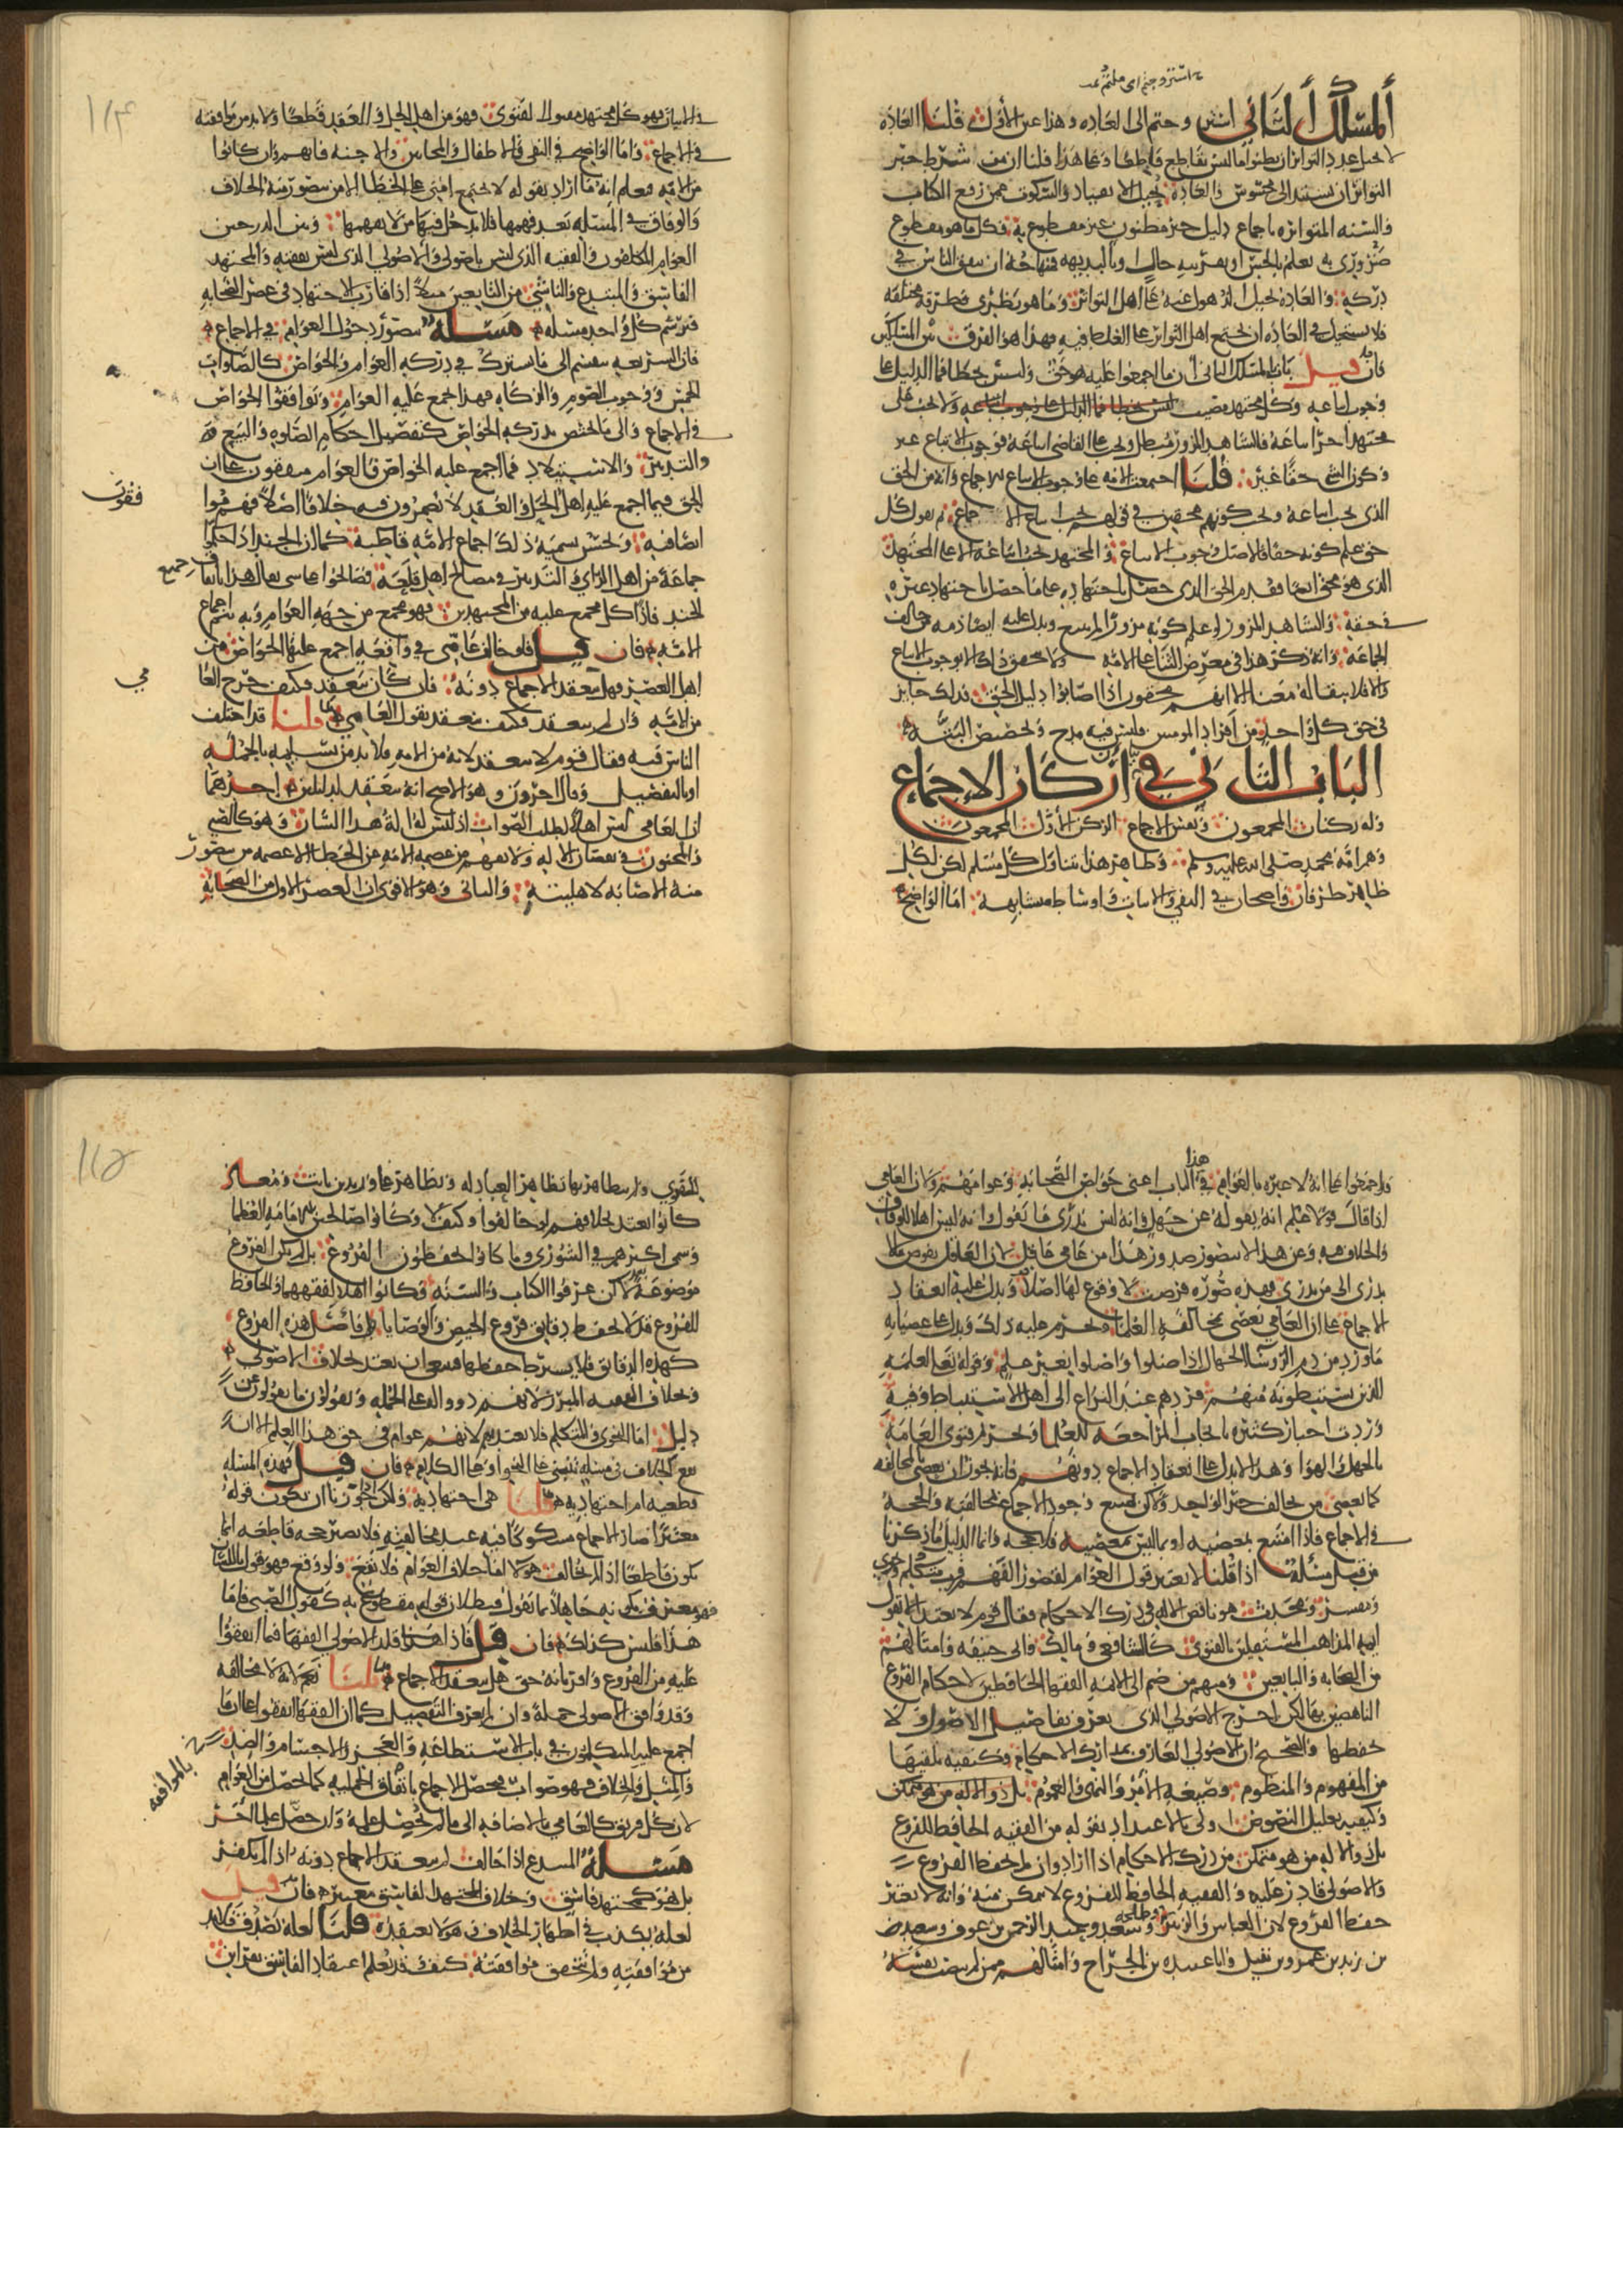 استروحتم اى ملتم
المسلك الثاني استروحتم الى العاده وهذا عين الأول قلنا العاده
لا تحيل على عدد التواتر ان يظنوا ما ليس بقاطع قاطعا وعن هذا قلنا ان من شرط خبر
التواتر ان يستند الى محسوس والعادة تحيل الانقياد والسكوت عمن رفع الكتاب
والسنه المتواتره باجماع دليل خبر مظنون غير مقطوع به فكل ما هو مقطوع
ضروري به يعلم بالحس او بقرينه حال او بالبديهه فمنهاجه ان يتفق الناس في
دركه والعاده تحيل الذهول عنه على اهل التواتر وما هو نظرى فطرقه مختلفه
فلا يستحيل في العاده ان يجتمع اهل التواتر على الغلط فيه فهذا هو الفرق بين المسلكين
فان قيل بنا المسلك الثاني ان ما اجمعوا عليه هو حق وليس بخطا فما الدليل على
وجوب اتباعه وكل مجتهد مصيب ولا يجب على
مجتهد آخر اتباعه والشاهد المزور مبطل ويجب على القاضي اتباعه فوجوب الاتباع غير
وكون الشى حقا غير قلنا اجمعت الامه على وجوب اتباع الاجماع وانه من الحق
الذى يجب اتباعه ويجب كونهم محقين في قولهم يجب اتباع الاجماع ثم نقول كل
حق علم كونه حقا فالاصل وجوب الاتباع والمجتهد يجب اتباعه الا على المجتهد
الذى هو محق ايضا فقدم الحق الذى حصل باجتهاده على ما حصل باجتهاد غيره
في حقه والشاهد المزور لو علم كونه مزورا لم يتبع ويدل عليه ايضا ذمه من خالف
الجماعه وانه ذكر هذا في معرض الثنا على الامه ولا يتحقق ذلك الا بوجوب الاتباع
والا فلا يبقى له معنى الا انهم محقون اذا اصابوا دليل الحق وذلك جايز
في حق كل واحد من افراد المومنين فليس فيه مدح وتخصيص البته
الباب الثاني في بيان اركان الاجماع
وله ركنان المجمعون ونفس الاجماع الركن الأول المجمعون
وهم امه محمد صلى الله عليه وسلم وظاهر هذا يتناول كل مسلم لكن لكل
ظاهر طرفان واضحان في النفي والاثبات واوساط متشابهة اما الواضح
في الاثبات فهو كل مجتهد مقبول الفتوى فهو من اهل الحل والعقد قطعا ولا بد من موافقته
في الاجماع واما الواضح في النفي فالاطفال والمجانين والاجنه فانهم وان كانوا
من الامه فنعلم انه ما اراد بقوله لا تجتمع امتى على الخطا الا من يتصور منه الخلاف
والوفاق في المسئله بعد فهمها فلا يدخل فيها من لا يفهمها وبين الدرجتين
العوام المكلفون والفقيه الذي ليس باصولى والاصولي الذى ليس بفقيه والمجتهد
الفاسق والمبتدع والناشئ من التابعين مثلا اذا قارب الاجتهاد في عصر الصحابة
فنرسم كل واحد مسئله مسئلة يتصور دخول العوام في الاجماع
فان الشريعه تنقسم الى ما يشترك في دركه العوام والخواص كالصلوات
الخمس ووجوب الصوم والزكاه فهذا مجمع عليه العوام وتوافقوا الخواص
في الاجماع والى ما يختص بدركه الخواص كتفصيل احكام الصلوه والبيع
والتدبير والاستيلاد فما اجمع عليه الخواص فالعوام متفقون على ان
الحق فيما اجمع عليه اهل الحل والعقد لا يضمرون فيه خلافا اصلا فهم موا
فقون
ايضا فيه ويحسن تسميه ذلك اجماع الامه قاطبة كما ان الجند اذا حكموا
جماعة من اهل الراي والتدبير في مصالح اهل قلعة فصالحوا على شى يقال هذا باتفاق جميع
الجند فاذا كل مجمع عليه من المجتهدين فهو مجمع من جهه العوام وبه يتم اجماع
الامه فان قيل فلو خالف عامي في واقعه اجمع عليها الخواص من
اهل العصر فهل ينعقد الاجماع دونه فان كان ينعقد فكيف خرج العا
مي
من الامه وان لم ينعقد فكيف يعتد بقول العامي قلنا قد اختلف
الناس فيه فقال قوم لا ينعقد لانه من الامه فلا بد من تسليمه بالجمله
او بالتفصيل وقال اخرون وهو الاصح انه ينعقد لدليلين احدهما
ان العامي ليس اهلا لطلب الصواب اذ ليس له اله هذا الشان وهو كالصبي
والمجنون في نقصان الاله ولا يفهم من عصمه الامه عن الخطا الا عصمه من يتصور
منه الاصابه لاهليته والثاني وهو الاقوى ان العصر الاول من الصحابه
قد اجمعوا على انه لا عبره بالعوام في هذا الباب اعنى خواص الصحابه وعوامهم ولان العامى
اذا قال قولا علم انه يقوله عن جهل وانه ليس يدرى ما يقول وانه ليس اهلا للوفاق
والخلاف فيه وعن هذا لا يتصور صدور هذا من عامي عاقل لان العاقل يفوض ما لا
يدرى الى من يدرى فهذه صوره فرضت لا وقوع لها اصلا ويدل عليه انعقاد
الاجماع على ان العامي يعصى بمخالفه العلما ويحرم عليه ذلك ويدل على عصيانه
ما ورد من ذم الرؤسا الجهال اذا ضلوا واضلوا بغير علم وقوله تعالى لعلمه
الذين يستنبطونه منهم فردهم عند النزاع الى اهل الاستنباط وفيه
وردت اخبار كثيره بايجاب المراجعه للعلما وتحريم فتوى العامه
بالجهل والهوا وهذا لا يدل على انعقاد الاجماع دونهم فانه يجوز ان يعصى بالمخالفه
كما يعصى من يخالف خبر الواحد ولكن يمتنع وجود الاجماع بمخالفته والحجه
في الاجماع فاذا امتنع بمعصيه او بما ليس بمعصيه فلا حجه وانما الدليل ما ذكرنا
من قبل مسئلة اذا قلنا لا يعتبر قول العوام لقصور الهم فرب متكلم ونحوى
ومفسر ومحدث هو ناقص الاله في درك الاحكام فقال قوم لا يعتد الا بقول
ايمه المذاهب المستقلين بالفتوى كالشافعي ومالك وابى حنيفه وامثالهم
من الصحابه والتابعين ومنهم من ضم الى الايمه الفقها الحافظين لاحكام الفروع
الناهضين بها لكن اخرج الاصولي الذى يعرف تفاصيل الاصول ولا
يحفظها والصحيح ان الاصولي العارف بمدارك الاحكام وكيفيه تلقيها
من المفهوم والمنظوم وصيغه الأمر والنهي والعموم
وكيفيه تعليل النصوص اولى بالاعتداد بقوله من الفقيه الحافظ للفروع
بل ذو الاله من هو متمكن من درك الاحكام اذا اراد وان لم يحفظ الفروع
والاصولى قادر عليه والفقيه الحافظ للفروع لا يتمكن منه وانه لا يعتبر
حفظ الفروع لان العباس والزبير وطلحه وسعد وعبد الرحمن بن عوف وسعيد
بن زيد بن عمرو بن نفيل وابا عبيده بن الجراح وامثالهم ممن لم ينصب نفسه
للفتوى ولم يتظاهر بها تظاهر العبادله وتظاهر على وزيد بن ثابت ومعاذ
كانوا يعتد بخلافهم لو خالفوا وكيف لا وكانوا صالحين للامامه العظمى
وسمى اكثرهم في الشورى وما كانوا يحفظون الفروع بل لم يكن الفروع
موضوعة بعد لكن عرفوا الكتاب والسنه وكانوا اهلا لفهمهما والحافظ
للفروع قد لا يحفظ دقايق فروع الحيض والوصايا فاصل هذه الفروع
كهذه الدقايق فلا يشترط حفظها فينبغي ان يعتد بخلاف الاصولى
وبخلاف الفقيه المبرز لانهم ذووا اله على الجمله ويقولون ما يقولون عن
دليل اما النحوى والمتكلم فلا يعتد بهم لانهم عوام في حق هذا العلم الا ان
يقع الكلام في مسئله تنبنى على النحو او على الكلام فان قيل فهذه المسئله
قطعيه ام اجتهاديه قلنا هي اجتهاديه ولكن اذا جوزنا ان يكون قوله
معتبرا صار الاجماع مشكوكا فيه عند مخالفته فلا يصير حجه قاطعه انما
يكون قاطعا اذا لم يخالف هولا اما خلاف العوام فلا يقع ولو وقع فهو قول باللسان
فهو معترف بكونه جاهلا بما يقول فبطلان قوله مقطوع به كقول الصبى فاما
هذا فليس كذلك فان قيل فاذا قلد الاصولي الفقها فيما اتفقوا
عليه من الفروع واقر بانه حق هل ينعقد الاجماع قلنا نعم لانه لا مخالفه
وقد وافق الاصولى جمله وان لم يعرف التفصيل كما ان الفقها اتفقوا على ان ما
اجمع عليه المتكلمون في باب الاستطاعه والعجز والاجسام والضد
والمثل والخلاف فهو صواب فيحصل الاجماع باتفاق الجمليه كما يحصل من العوام
بالموافقه
لان كل فريق كالعامي بالاضافه الى ما لم يحصل علمه وان حصل علما آخر
مسئلة المبتدع اذا خالف لم ينعقد الاجماع دونه اذا لم يكفر
بل هو كمجتهد فاسق وخلاف المجتهد الفاسق معتبر فان قيل
لعله يكذب في اظهار الخلاف وهو لا يعتقده قلنا لعله يصدق ولا بد
من موافقته ولم نتحقق موافقته كيف وقد نعلم اعتقاد الفاسق بقراين